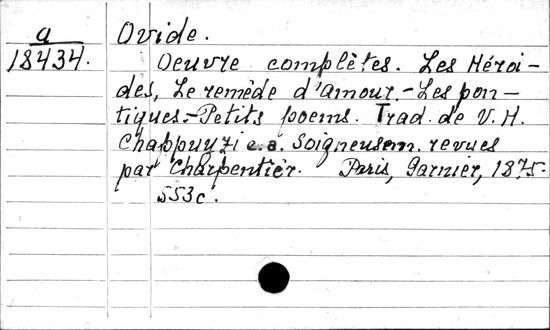 a
18434.
Ovide.
Oeuvre complètes. Les Héroi-
des, Le remède d'amour.-Les pon-
tiques.-Petits poems. Trad. de V. H.
Chappuyzi e.a. Soigneusem. revues
par Charpentièr. Paris, Garnier, 1875.
553c.